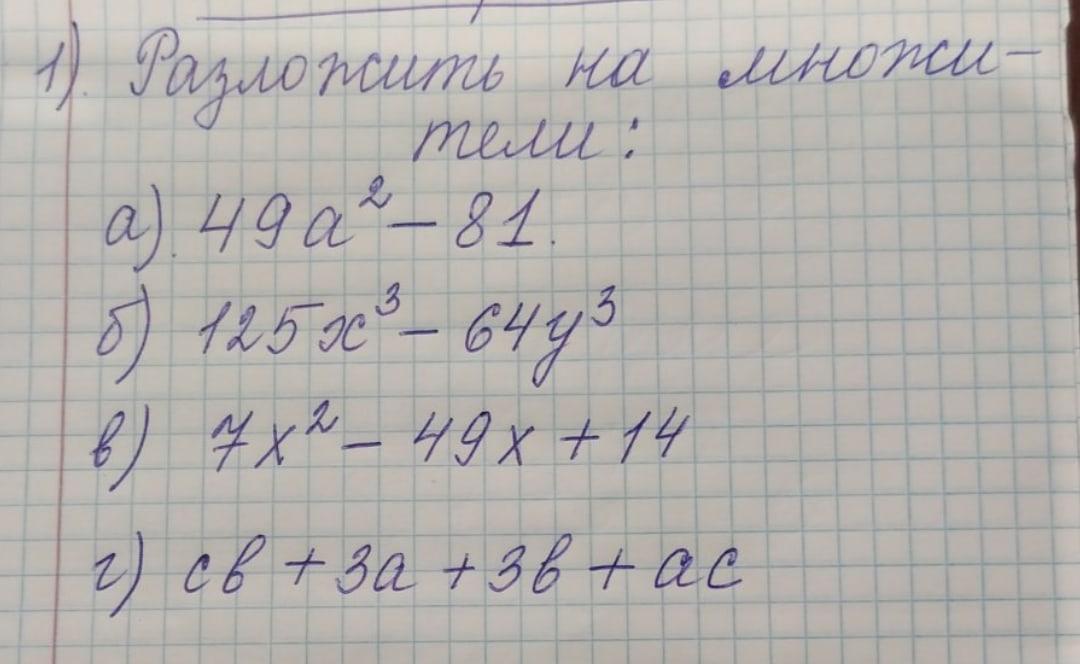 1). Разложить на множи-
тели:
а). 49а² – 81.
б) 125х³ – 64у³
в) 7х² – 49х + 14
г) св + 3а + 3в + ас